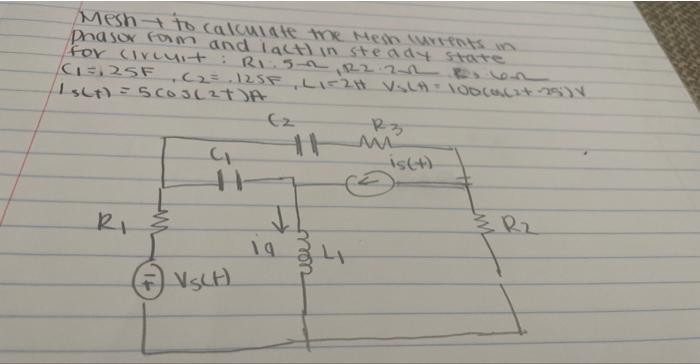 Mesh → to calculate the Mesh currents in
phasor form and ia(t) in steady state
for circuit: R1.5Ω, R2.2Ω R3.6Ω
C1=.25F, C2=.125F, L1=2H Vs(t)=100cos(2t-25)V
Is(t)=5cos(2t)A
C2
R3
C1
is(t)
R1
ia
L1
R2
Vs(t)